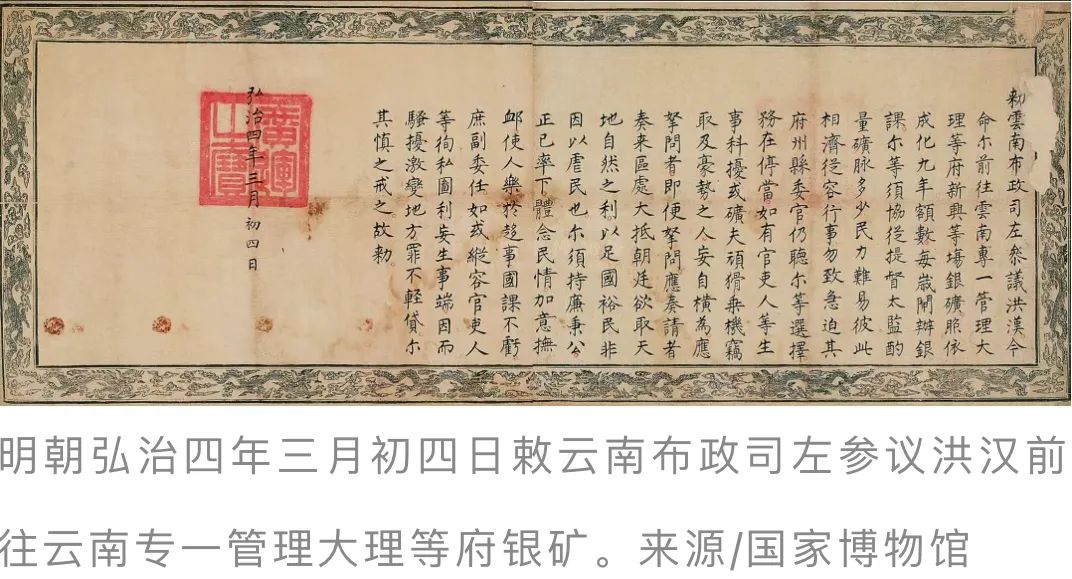 勅雲南布政司左叅議洪漢今
命尔前往雲南專一管理大
理等府新興等塲銀礦照依
成化九年額數每歲閘辦銀
課尔等須協從提督太監酌
量礦脉多少民力難易彼此
相濟從容行事勿致急迫其
府州縣委官仍聽尔等選擇
務在停當如有官吏人等生
事科擾或礦夫頑猾乗機竊
取及豪勢之人妄自橫為應
拏問者即便拏問應奏請者
奏来區處大抵朝廷欲取天
地自然之利以足國裕民非
因以虐民也尔須持廉秉公
正己率下體念民情加意撫
衈使人樂扵趍事國課不虧
庶副委任如或縱容官吏人
等徇私圖利妄生事端因而
騷擾激變地方罪不輕貸尔
其慎之戒之故勅
弘治四年三月初四日
廣運之寶
明朝弘治四年三月初四日敕云南布政司左参议洪汉前
往云南专一管理大理等府银矿。来源/国家博物馆